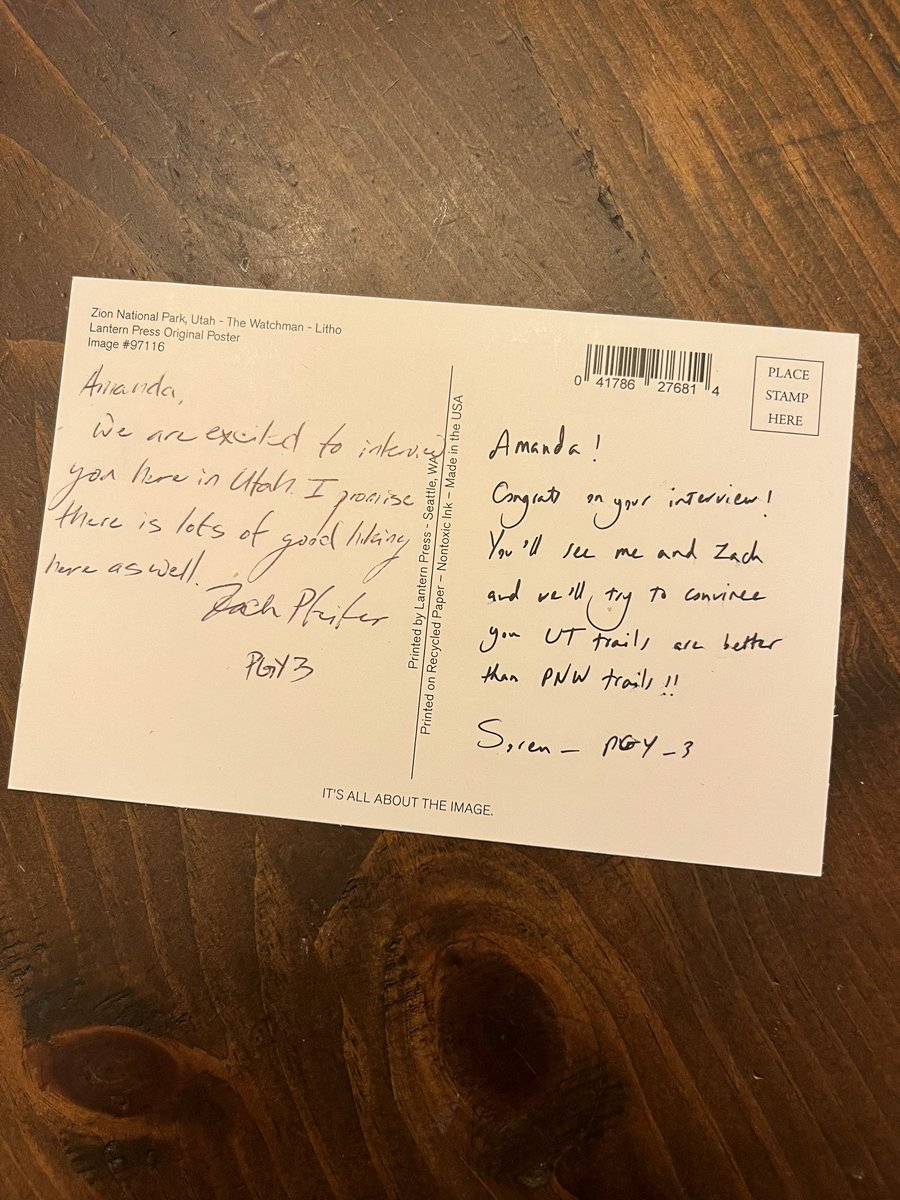 Zion National Park, Utah - The Watchman - Litho
Lantern Press Original Poster
Image #97116
Amanda,
We are excited to interview
you here in Utah. I promise
there is lots of good hiking
here as well.
Zach Pfeifer
PGY3
Printed by Lantern Press - Seattle, WA
Printed on Recycled Paper – Nontoxic Ink – Made in the USA
0 41786 27681 4
PLACE
STAMP
HERE
Amanda!
Congrats on your interview!
You'll see me and Zach
and we'll try to convince
you UT trails are better
than PNW trails!!
Soren – PGY-3
IT'S ALL ABOUT THE IMAGE.